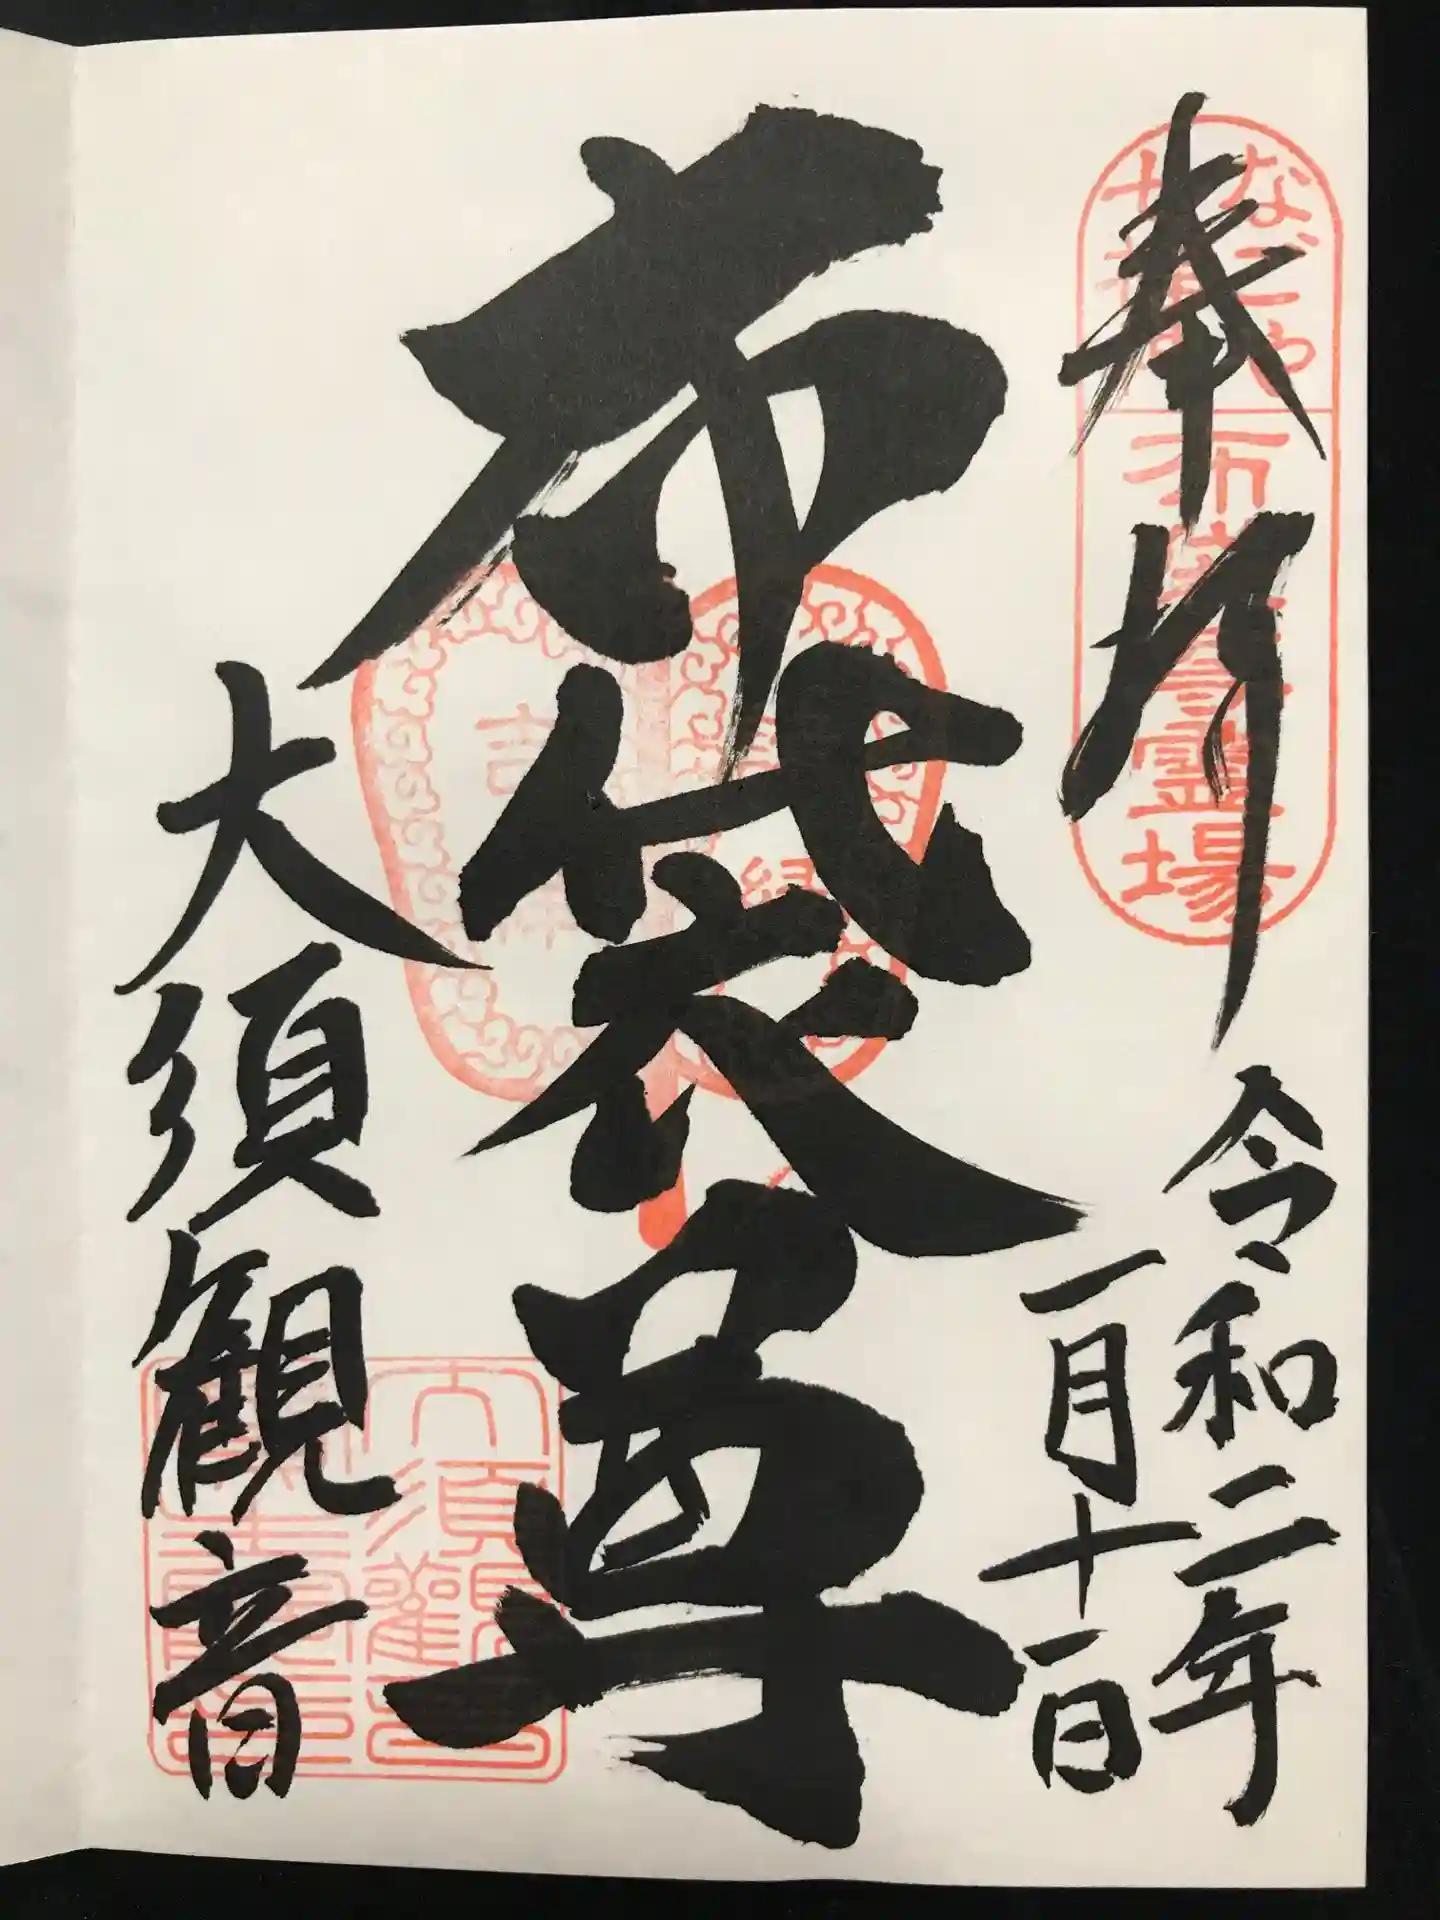 奉拝
令和二年
一月十一日
布袋尊
大須観音
なごや
七福神
布袋尊霊場